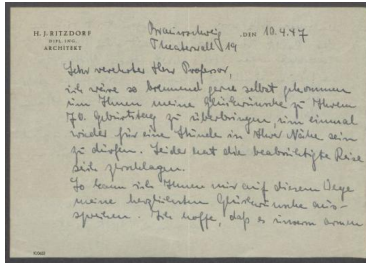 H. J. RITZDORF
DIPL. ING.
ARCHITEKT
Braunschweig, DEN 10.4.47
Theaterwall 19
Sehr verehrter Herr Professor,
ich wäre so brennend gerne selbst gekommen
um Ihnen meine Glückwünsche zu Ihrem
70. Geburtstag zu überbringen, um einmal
wieder für eine Stunde in Ihrer Nähe sein
zu dürfen. Leider hat die beabsichtigte Reise
sich zerschlagen.
So kann ich Ihnen nur auf diesem Wege
meine herzlichsten Glückwünsche aus-
sprechen. Ich hoffe, daß es unserm armen